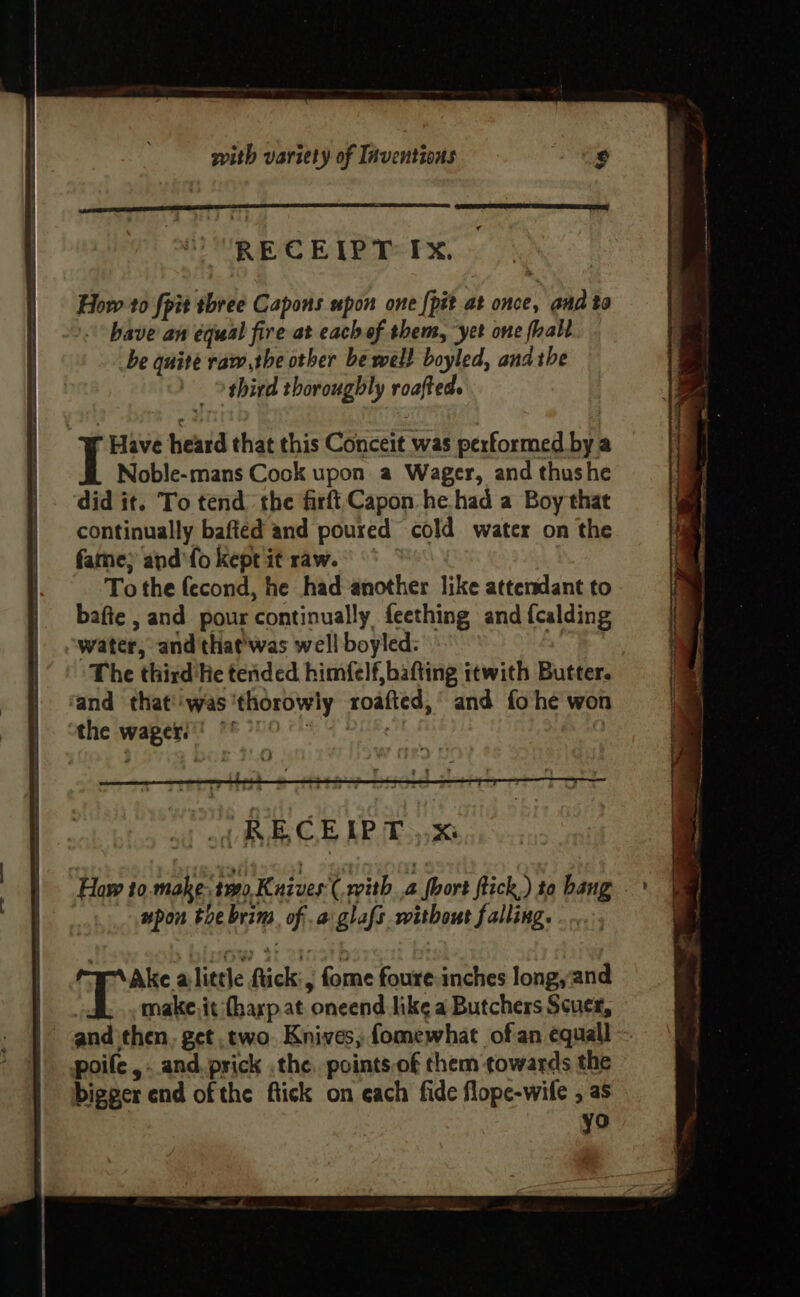 with variety of Inventions 9
RECEIPT IX.
How to ſpit three Capons upon one ſpit at once, and to
have an equal fire at each of them, yet one ſhall
be quite raw, the other be well boyled, and the
third thoroughly roaſted.
I Have heard that this Conceit was performed by a
Noble-mans Cook upon a Wager, and thus he
did it. To tend the firſt Capon he had a Boy that
continually baſted and poured cold water on the
ſame, and ſo kept it raw.
To the ſecond, he had another like attendant to
baſte, and pour continually ſeething and ſcalding
water, and that was well boyled.
The third he tended himſelf, baſting it with Butter.
and that was thorowly roaſted, and ſo he won
the wager.
RECEIPT X.
How to make two Knives (with a ſhort ſtick,) to hang
upon the brim of a glaſs without falling.
TAke a little ſtick, ſome foure inches long, and
make it ſharp at one end like a Butchers Scuer,
and then get two Knives, ſomewhat of an equall
poiſe, and prick the points of them towards the
bigger end of the ſtick on each ſide ſlope-wiſe, as
yo